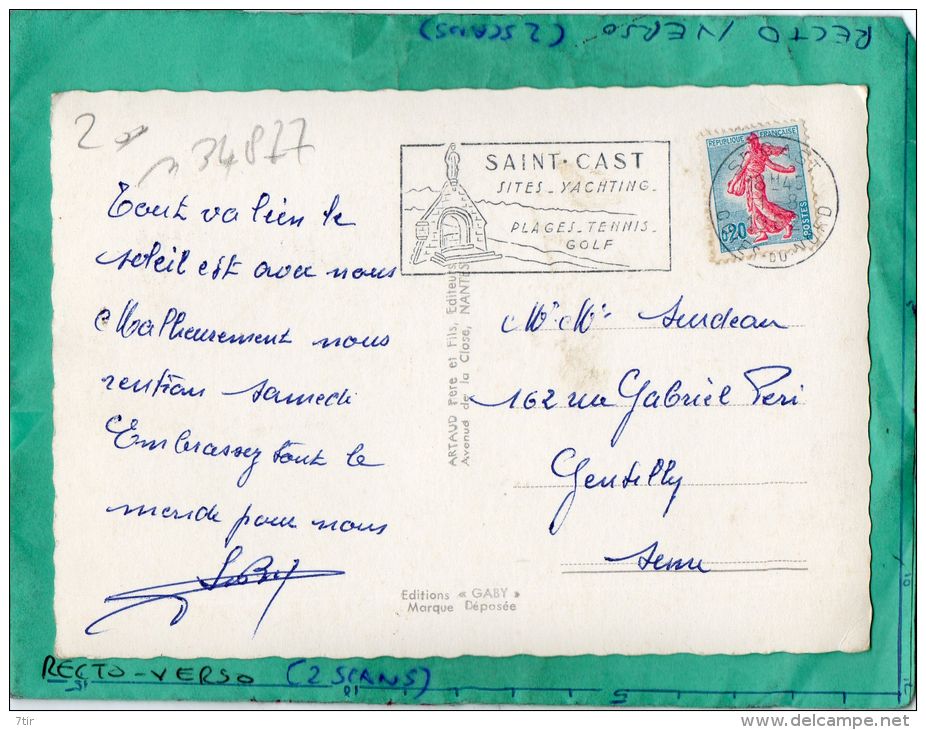 RECTO VERSO (2 SCANS)
2
34877
SAINT-CAST
SITES_YACHTING_
PLAGES_TENNIS_
GOLF
RÉPUBLIQUE FRANÇAISE
0,20
POSTES
18H45
DU-NORD
Tout va bien le
soleil est avec nous
Malheureusement nous
rentrons samedi
Embrassez tout le
monde pour nous
ARTAUD Père et Fils, Editeurs
Avenue de la Close, NANTES
Mr Mme Surdeau
162 rue Gabriel Peri
Gentilly
Seine
Editions « GABY »
Marque Déposée
RECTO-VERSO (2 SCANS)
5
7tir
www.delcampe.net